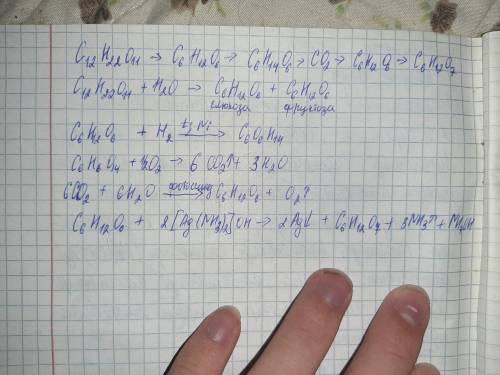 C12H22O11 → C6H12O6 → C6H14O6 → CO2 → C6H12O6 → C6H12O7
C12H22O11 + H2O → C6H12O6 + C6H12O6
глюкоза фруктоза
C6H12O6 + H2 t, Ni → C6O6H14
C6H6O14 + O2 → 6CO2↑ + 3H2O
6CO2 + 6H2O → C6H12O6 + O2↑
C6H12O6 + 2[Ag(NH3)2]OH → 2Ag↓ + C6H12O7 + 3NH3↑ +